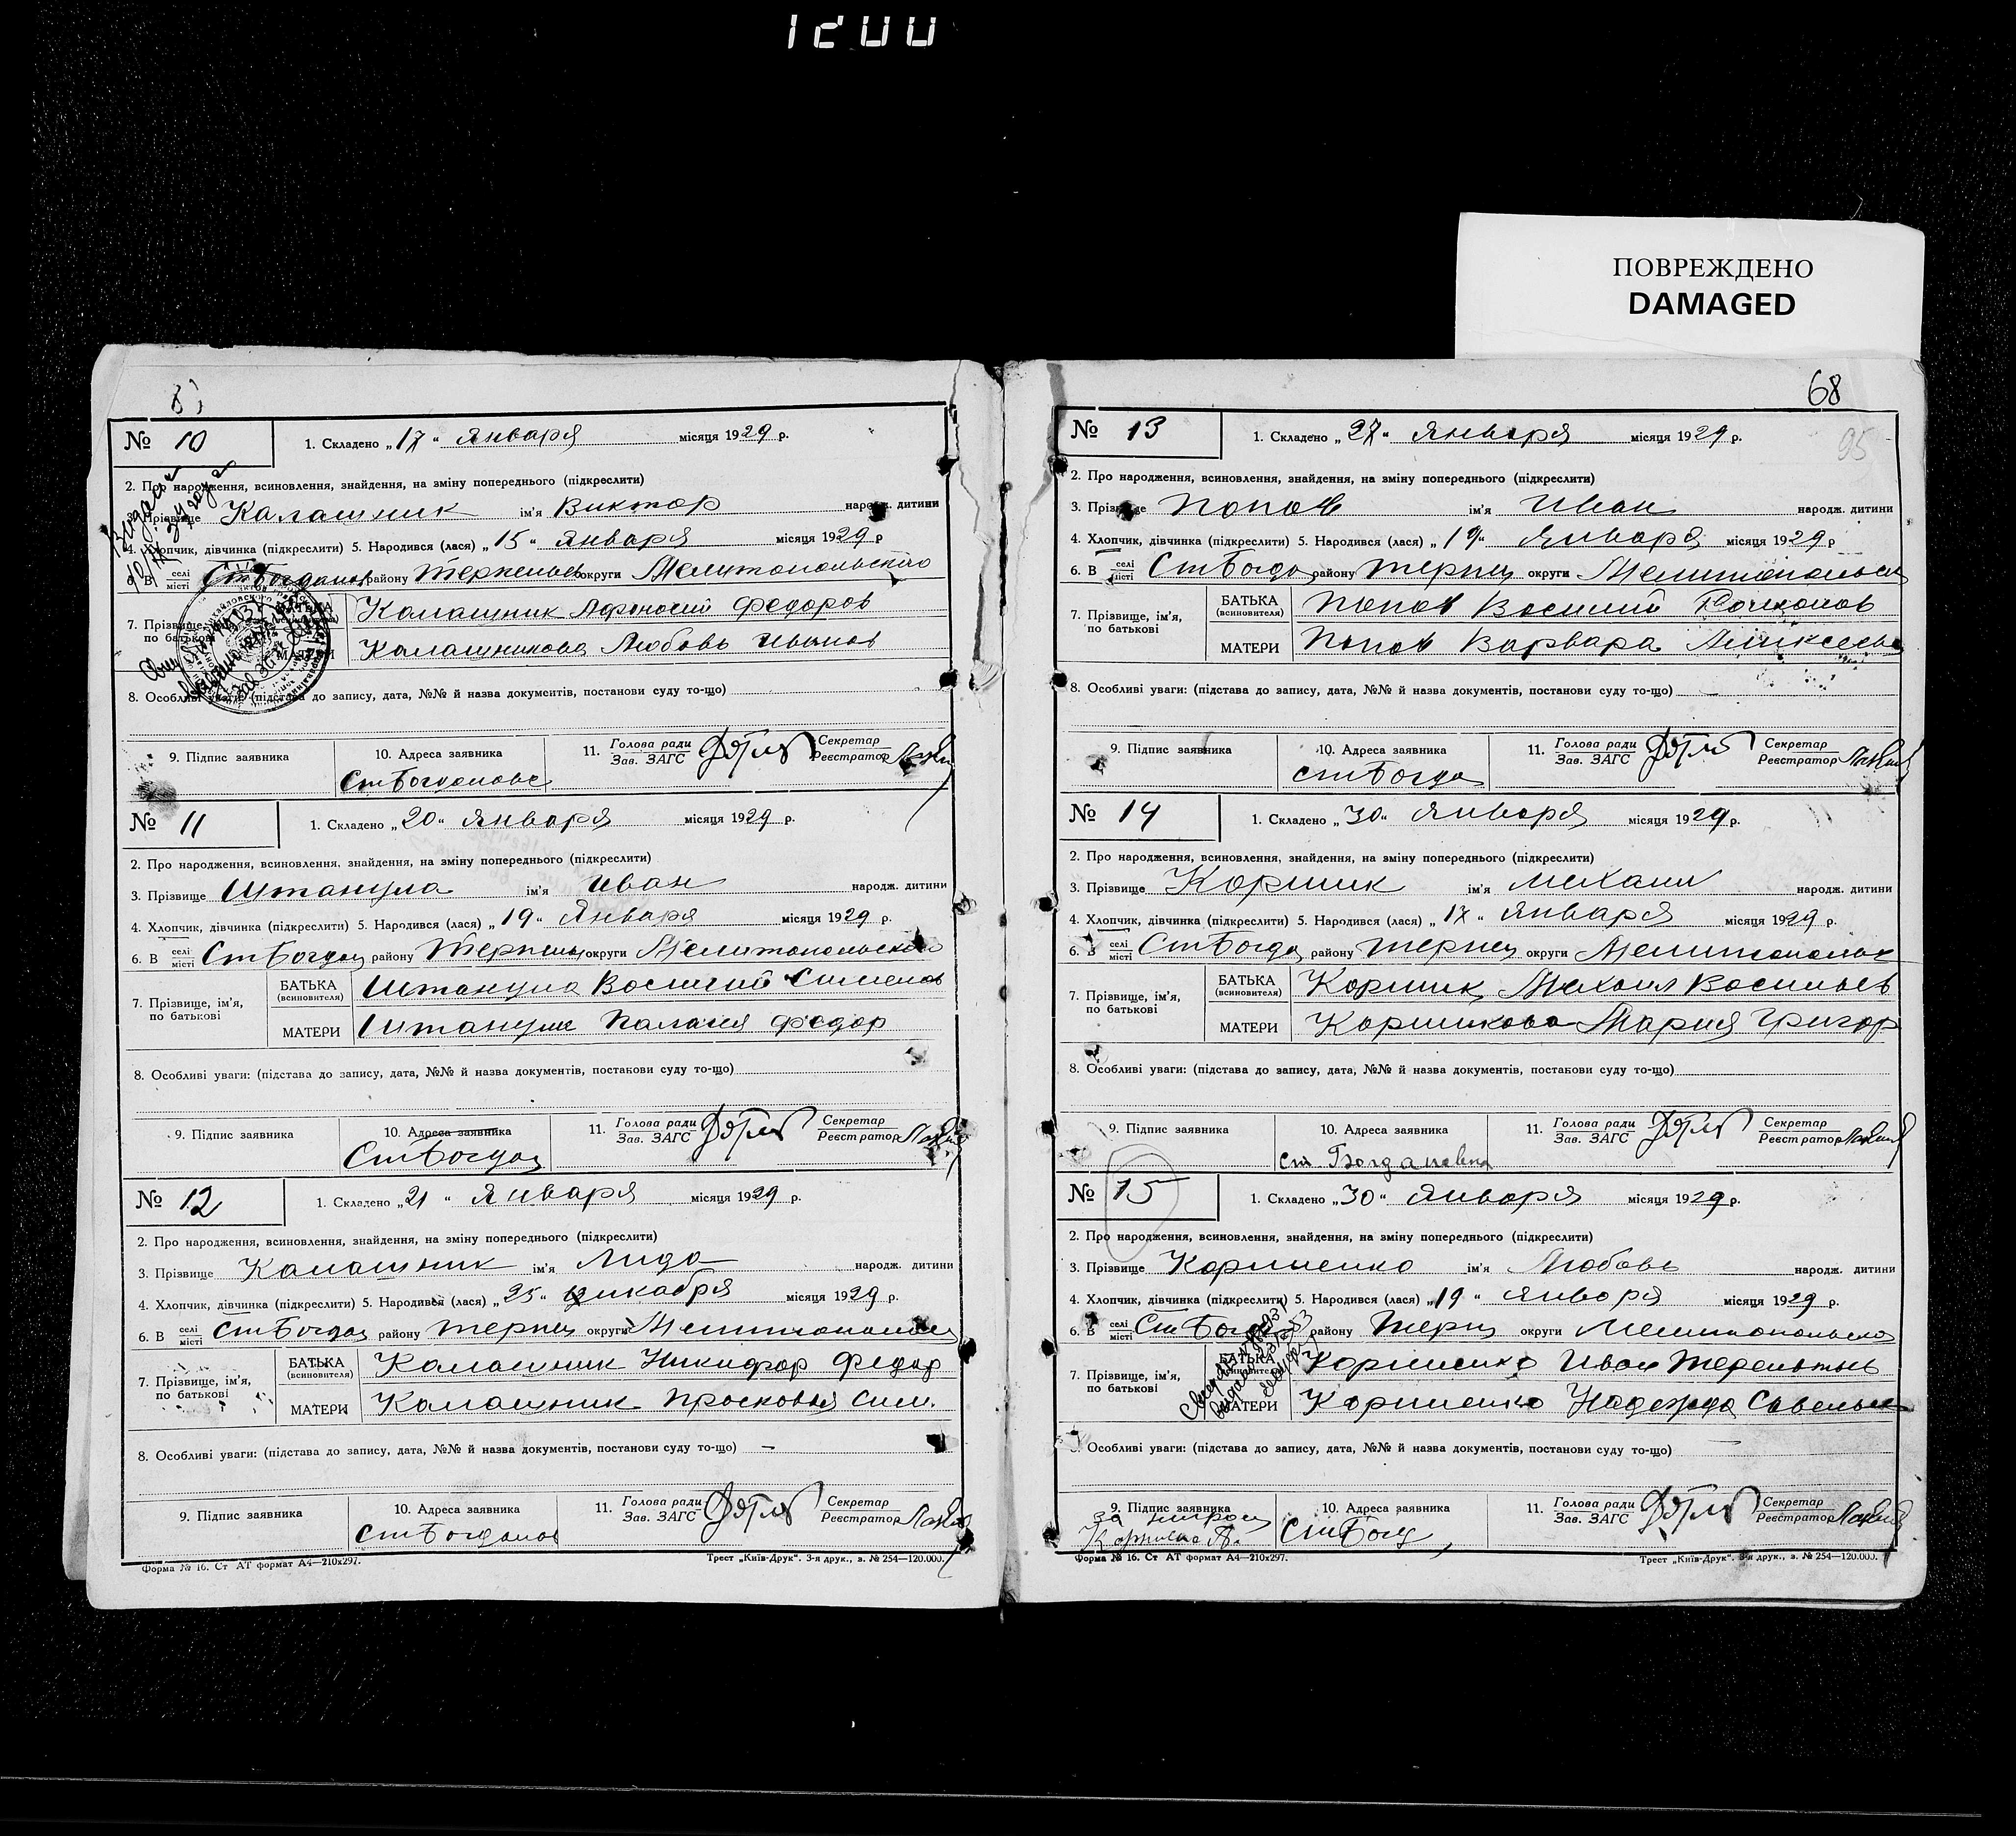 1200
ПОВРЕЖДЕНО
DAMAGED
№ 10
1. Складено „17“ Января місяця 1929 р.
2. Про народження, всиновлення, знайдення, на зміну попереднього (підкреслити)
3. Прізвище Калашник ім'я Виктор народж. дитини
4. Хлопчик, дівчинка (підкреслити) 5. Народився (лася) „15“ Января місяця 1929 р
6. В селі місті СтБогданов району Терпеньев округи Мелитопольского
7. Прізвище, ім'я, по батькові
БАТЬКА Калашник Афонасий Федоров
МАТЕРИ Калашникова Любовь Иванов
8. Особливі уваги: (підстава до запису, дата, №№ й назва документів, постанови суду то-що)
9. Підпис заявника
10. Адреса заявника
СтБогдановке
11. Голова ради Зав. ЗАГС
Секретар Реєстратор
№ 11
1. Складено „20“ Января місяця 1929 р.
2. Про народження, всиновлення, знайдення, на зміну попереднього (підкреслити)
3. Прізвище Штанула ім'я Иван народж. дитини
4. Хлопчик, дівчинка (підкреслити) 5. Народився (лася) „19“ Января місяця 1929 р.
6. В селі місті СтБогдан району Терпень округи Мелитопольской
7. Прізвище, ім'я, по батькові
БАТЬКА (всиновителя) Штанула Василий Сименов
МАТЕРИ Штанула Палагея Федор
8. Особливі уваги: (підстава до запису, дата, №№ й назва документів, постанови суду то-що)
9. Підпис заявника
10. Адреса заявника
СтБогдан
11. Голова ради Зав. ЗАГС
Секретар Реєстратор
№ 12
1. Складено „21“ Января місяця 1929 р.
2. Про народження, всиновлення, знайдення, на зміну попереднього (підкреслити)
3. Прізвище Калашник ім'я Лида народж. дитини
4. Хлопчик, дівчинка (підкреслити) 5. Народився (лася) „25“ декабря місяця 1929 р.
6. В селі місті СтБогдан району Терпен округи Мелитопольск
7. Прізвище, ім'я, по батькові
БАТЬКА (всиновителя) Калашник Никифор Федор
МАТЕРИ Калашник Просковья Сим.
8. Особливі уваги: (підстава до запису, дата, №№ й назва документів, постанови суду то-що) —
9. Підпис заявника
10. Адреса заявника
СтБогданов
11. Голова ради Зав. ЗАГС
Секретар Реєстратор
Форма № 16. Ст АТ формат А4—210x297.
Трест „Київ-Друк“. 3-я друк., з. № 254—120.000.
68
95
№ 13
1. Складено „27“ Января місяця 1929 р.
2. Про народження, всиновлення, знайдення, на зміну попереднього (підкреслити)
3. Прізвище Попов ім'я Иван народж. дитини
4. Хлопчик, дівчинка (підкреслити) 5. Народився (лася) „19“ Января місяця 1929 р
6. В селі місті СтБогда району Терпен округи Мелитопольск
7. Прізвище, ім'я, по батькові
БАТЬКА (всиновителя) Попов Василий
МАТЕРИ Попов Варвара Аликсеевн
8. Особливі уваги: (підстава до запису, дата, №№ й назва документів, постанови суду то-що)
9. Підпис заявника
10. Адреса заявника
СтБогда
11. Голова ради Зав. ЗАГС
Секретар Реєстратор
№ 14
1. Складено „30“ Января місяця 1929 р.
2. Про народження, всиновлення, знайдення, на зміну попереднього (підкреслити)
3. Прізвище Коршик ім'я Михаил народж. дитини
4. Хлопчик, дівчинка (підкреслити) 5. Народився (лася) „17“ Января місяця 1929 р.
6. В селі місті СтБогда району Терпен округи Мелитопольск
7. Прізвище, ім'я, по батькові
БАТЬКА (всиновителя) Коршик Михаил Васильев
МАТЕРИ Коршикова Мария Григор
8. Особливі уваги: (підстава до запису, дата, №№ й назва документів, постанови суду то-що)
9. Підпис заявника
10. Адреса заявника
ст Богдановка
11. Голова ради Зав. ЗАГС
Секретар Реєстратор
№ 15
1. Складено „30“ Января місяця 1929 р.
2. Про народження, всиновлення, знайдення, на зміну попереднього (підкреслити)
3. Прізвище Корниенко ім'я Любовь народж. дитини
4. Хлопчик, дівчинка (підкреслити) 5. Народився (лася) „19“ Января місяця 1929 р.
6. В селі місті СтБогд району Терп округи Мелитопольско
7. Прізвище, ім'я, по батькові
БАТЬКА Корниенко Иван Терентьев
МАТЕРИ Корниенко Надежда Савельев
Особливі уваги: (підстава до запису, дата, №№ й назва документів, постанови суду то-що)
9. Підпис заявника
10. Адреса заявника
СтБогд
11. Голова ради Зав. ЗАГС
Секретар Реєстратор
Форма № 16. Ст АТ формат А4—210x297.
Трест „Київ-Друк“. 3-я друк., з. № 254—120.000.